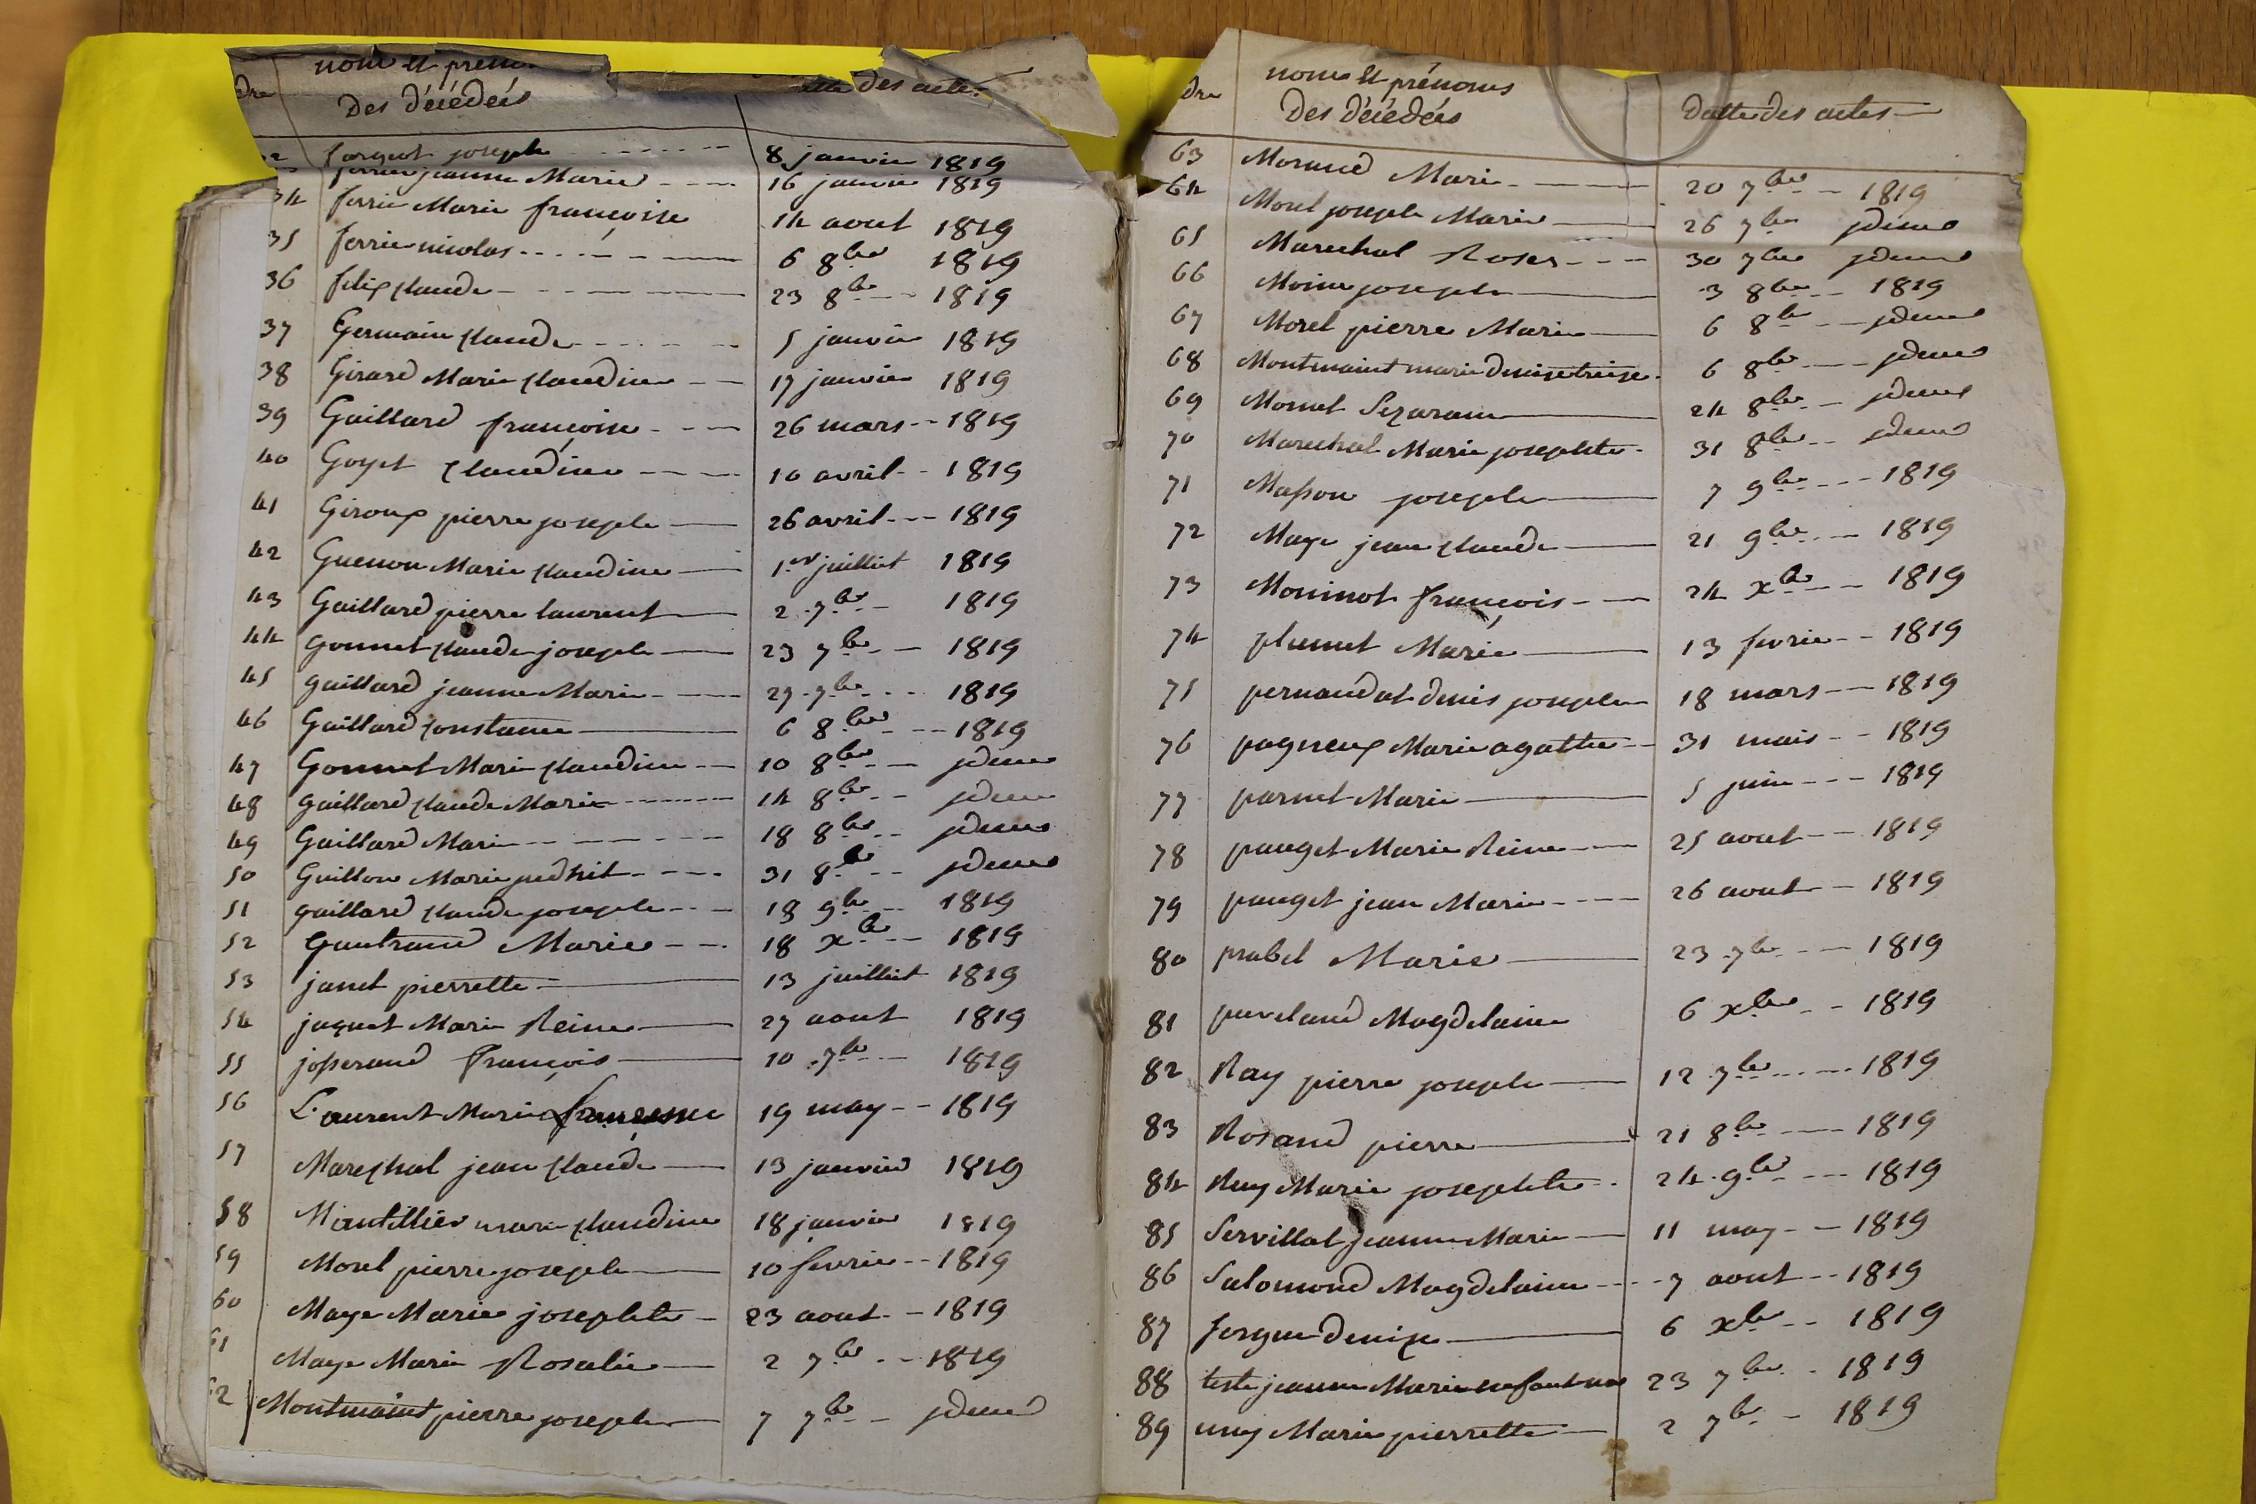 dre nom et prenoms
Des décédés
datte des actes
2 forgeot joseph 8 janvier 1819
ferrier jeanne Marie 16 janvier 1819
34 ferrie Marie françoise 14 aout 1819
35 ferrie nicolas 6 8bre 1819
36 felix claude 23 8bre 1819
37 Germain claude 5 janvier 1819
38 Girard Marie claudine 17 janvier 1819
39 Gaillard françoise 26 mars 1819
40 Goyet claudine 10 avril 1819
41 Giroux pierre joseph 26 avril 1819
42 Guenon Marie claudine 1er juillet 1819
43 Gaillard pierre laurent 2 7bre 1819
44 gonnet claude joseph 23 7bre 1819
45 gaillard jeanne Marie 27 7bre 1819
46 Gaillard constance 6 8bre 1819
47 Gonnet Marie claudine 10 8bre jdem
48 gaillard claude Marie 14 8bre jdem
49 Gaillard Marie 18 8bre jdem
50 Guillon Marie judhit 31 8bre jdem
51 gaillard claude joseph 18 9bre 1819
52 Gautrand Marie 18 xbre 1819
53 janet pierrette 13 juillet 1819
54 jaquet Marie Reine 27 aout 1819
55 josserand François 10 7bre 1819
56 Laurent Marie françoise 19 may 1819
57 Marechal jean claude 13 janvier 1819
58 Mantillier marie claudine 18 janvier 1819
59 Morel pierre joseph 10 fevrie 1819
60 Maye Marie josephte 23 aout 1819
61 Maye Marie Rosalie 2 7bre 1819
62 Montmaint pierre joseph 7 7bre jdem
dre noms et prénoms
Des décédés
Datte des actes
63 Morand Marie 20 7bre 1819
64 Morel joseph Marie 26 7bre jdem
65 Marechal Rose 30 7bre jdem
66 Moine joseph 3 8bre 1819
67 Morel pierre Marie 6 8bre jdem
68 Montmaint marie denise 6 8bre jdem
69 Monnet 24 8bre jdem
70 Marechal Marie josephte 31 8bre jdem
71 Masson joseph 7 9bre 1819
72 Maye jean claude 21 9bre 1819
73 Moninot françois 24 xbre 1819
74 plumet Marie 13 fevrie 1819
75 pernaudat denis joseph 18 mars 1819
76 pagneux Marie agathe 31 mais 1819
77 parnet Marie 5 juin 1819
78 pauget Marie Reine 25 aout 1819
79 pauget jean Marie 26 aout 1819
80 prabel Marie 23 7bre 1819
81 Magdelaine 6 xbre 1819
82 Ray pierre joseph 12 7bre 1819
83 Rosand pierre 21 8bre 1819
84 Ruy Marie josephte 24 9bre 1819
85 Servillat jeanne Marie 11 may 1819
86 Salomond Magdelaine 7 aout 1819
87 denise 6 xbre 1819
88 teste jeanne Marie 23 7bre 1819
89 uny Marie pierrette 2 7bre 1819